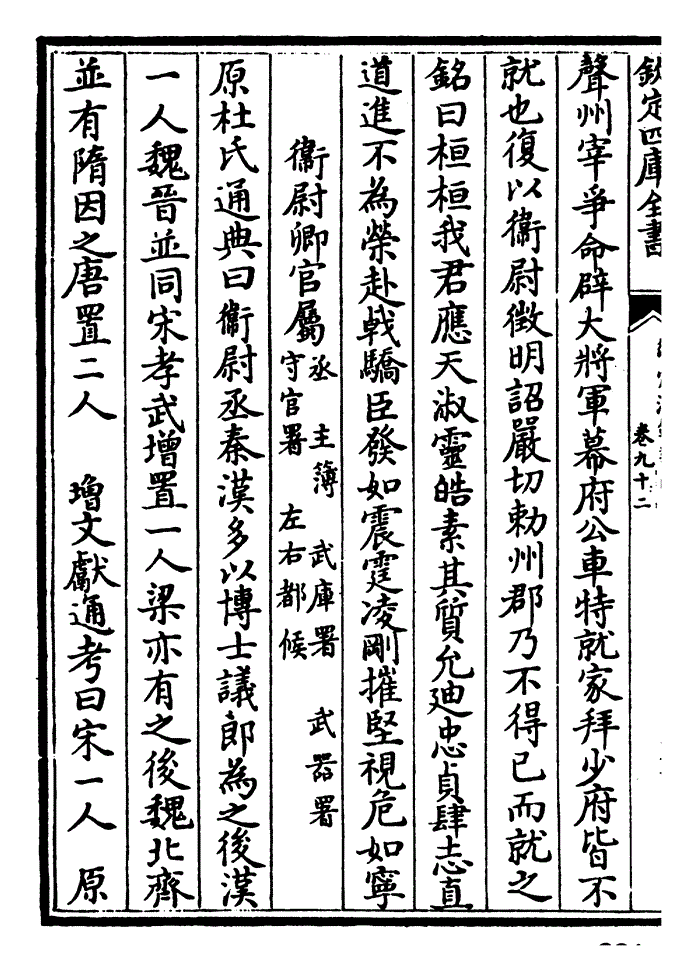 欽定四庫全書
卷九十二
聲州宰爭命辟大將軍幕府公車特就家拜少府皆不
就也復以衞尉徵明詔嚴切勅州郡乃不得已而就之
銘曰桓桓我君應天淑靈皓素其質允廸忠貞肆志直
道進不為榮赴㦸驕臣發如震霆凌剛摧堅視危如寧
衞尉卿官屬丞 主簿 武庫署 武器署
守官署 左右都候
原杜氏通典曰衞尉丞秦漢多以博士議郎為之後漢
一人魏晉並同宋孝武增置一人梁亦有之後魏北齊
並有隋因之唐置二人 增文獻通考曰宋一人 原